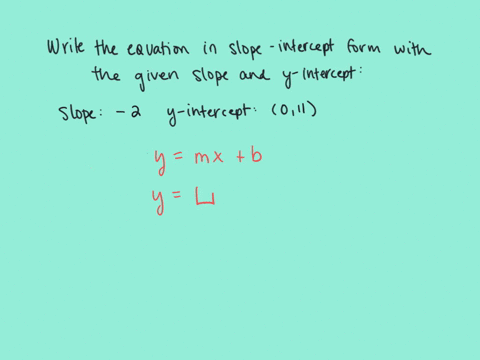 Write the equation in slope-intercept form with
the given slope and y-intercept:
slope: -2 y-intercept: (0,11)
y = mx + b
y =